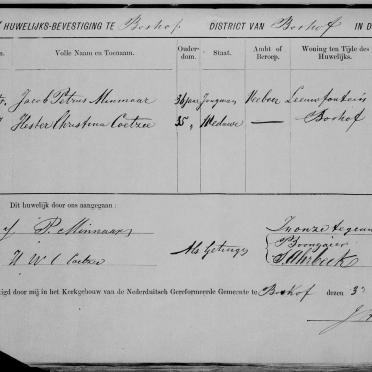 HUWELIJKS-BEVESTIGING TE Boshof DISTRICT VAN Boshof IN D
Volle Naam en Toenaam. Ouderdom. Staat. Ambt of Beroep. Woning ten Tijde des Huwelijks.
Jacob Petrus Minnaar 36 jaar Jongman Veeboer Leeuwfontein
Hester Christina Coetzee 35 " Weduwe — Boshof
Dit huwelijk door ons aangegaan:
J P. Minnaar In onze tegenw
H W C Coetzee Als Getuigen
tigd door mij in het Kerkgebouw van de Nederduitsch Gereformeerde Gemeente te Boshof dezen 3